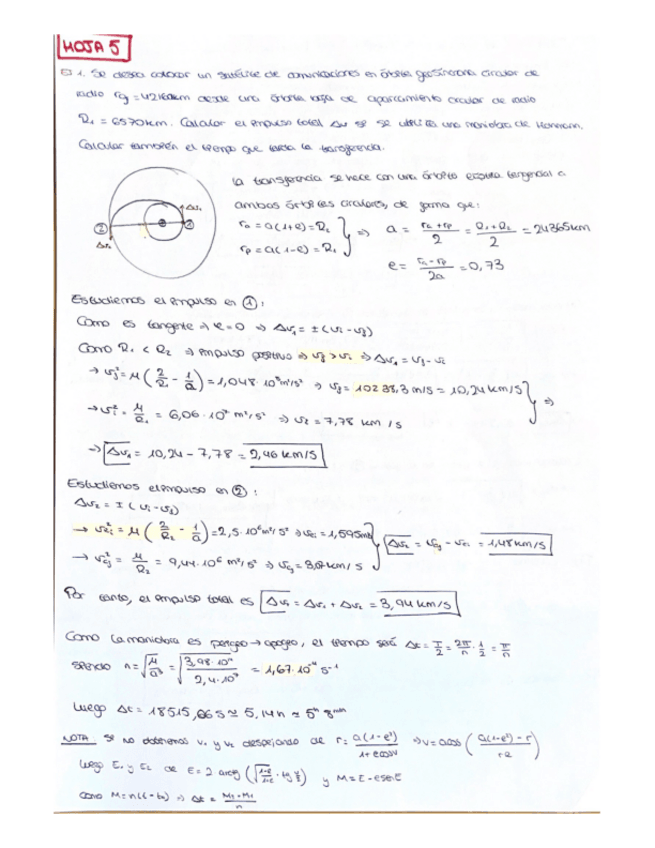 HOJA 5
EJ 1. Se desea colocar un satélite de comunicaciones en órbita geosíncrona circular de
radio rg = 42160km desde una órbita baja de aparcamiento circular de radio
R1 = 6570km. Calcular el impulso total Δv si se utiliza una maniobra de Hohmann.
Calcular también el tiempo que tarda la transferencia.
la transferencia se hace con una órbita elíptica tangencial a
ambas órbitas circulares, de forma que:
ra = a(1+e) = R2
rp = a(1-e) = R1
⇒ a = (ra + rp)/2 = (R1 + R2)/2 = 24365km
e = (ra - rp)/2a = 0,73
② ① Δv1
Δv2
Estudiemos el impulso en ①:
Como es tangente ⇒ φ = 0 ⇒ Δv1 = ±(vi - vf)
Como R1 < R2 ⇒ impulso positivo ⇒ vf > vi ⇒ Δv1 = vf - vi
→ vf² = μ(2/R1 - 1/a) = 1,048·10⁸ m²/s² ⇒ vf = 10238,3 m/s = 10,24 km/s
→ vi² = μ/R1 = 6,06·10⁷ m²/s² ⇒ vi = 7,78 km/s
⇒
→ Δv1 = 10,24 - 7,78 = 2,46 km/s
Estudiemos el impulso en ②:
Δv2 = ±(vi - vf)
→ v2i² = μ(2/R2 - 1/a) = 2,5·10⁶ m²/s² ⇒ v2i = 1,595
→ v2f² = μ/R2 = 9,44·10⁶ m²/s² ⇒ v2f = 3,07 km/s
Δv2 = v2f - v2i = 1,48 km/s
Por tanto, el impulso total es ΔvT = Δv1 + Δv2 = 3,94 km/s
Como la maniobra es perigeo → apogeo, el tiempo será Δt = T/2 = 2π/n · 1/2 = π/n
siendo n = √(μ/a³) = = 1,67·10⁻⁴ s⁻¹
Luego Δt = 18515,66 s ≈ 5,14h ≈ 5h 8min
NOTA: Si no v1 y v2 despejando de r = a(1-e²)/(1+ecosv) ⇒ v = acos((a(1-e²)-r)/re)
luego E1 y E2 de E = 2 arctg(√((1-e)/(1+e)) · tg v/2) y M = E - esenE
como M = n(t-to) ⇒ Δt = (M2 - M1)/n